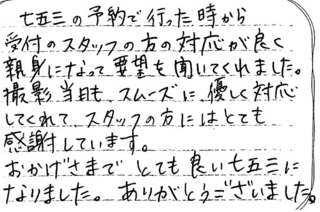 七五三の予約で行った時から
受付のスタッフの方の対応が良く
親身になって要望を聞いてくれました。
撮影当日も、スムーズに、優しく対応
してくれて、スタッフの方にはとても
感謝しています。
おかげさまでとても良い七五三に
なりました。ありがとうございました。